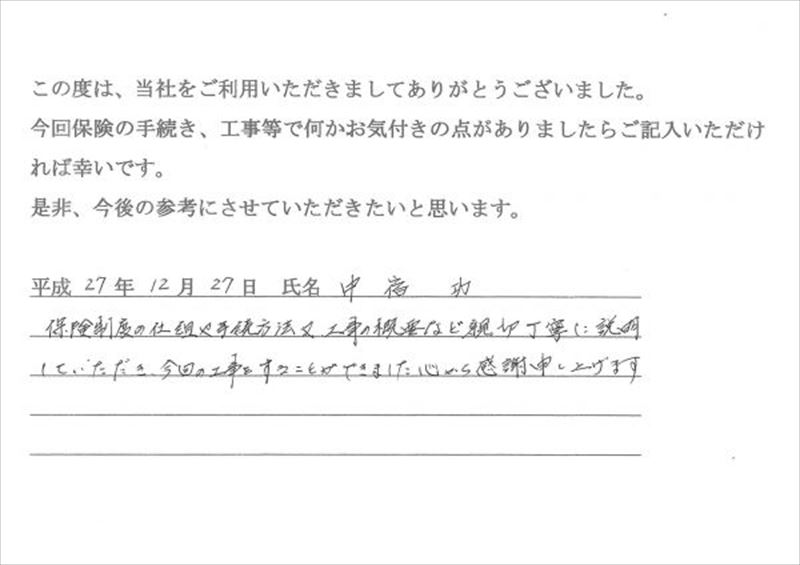 この度は、当社をご利用いただきましてありがとうございました。
今回保険の手続き、工事等で何かお気付きの点がありましたらご記入いただけ
れば幸いです。
是非、今後の参考にさせていただきたいと思います。
平成 27 年 12 月 27 日 氏名 中宿 功
保険制度の仕組や手続方法や工事の概要など親切丁寧に説明
していただき、今回の工事をすることができました心から感謝申し上げます